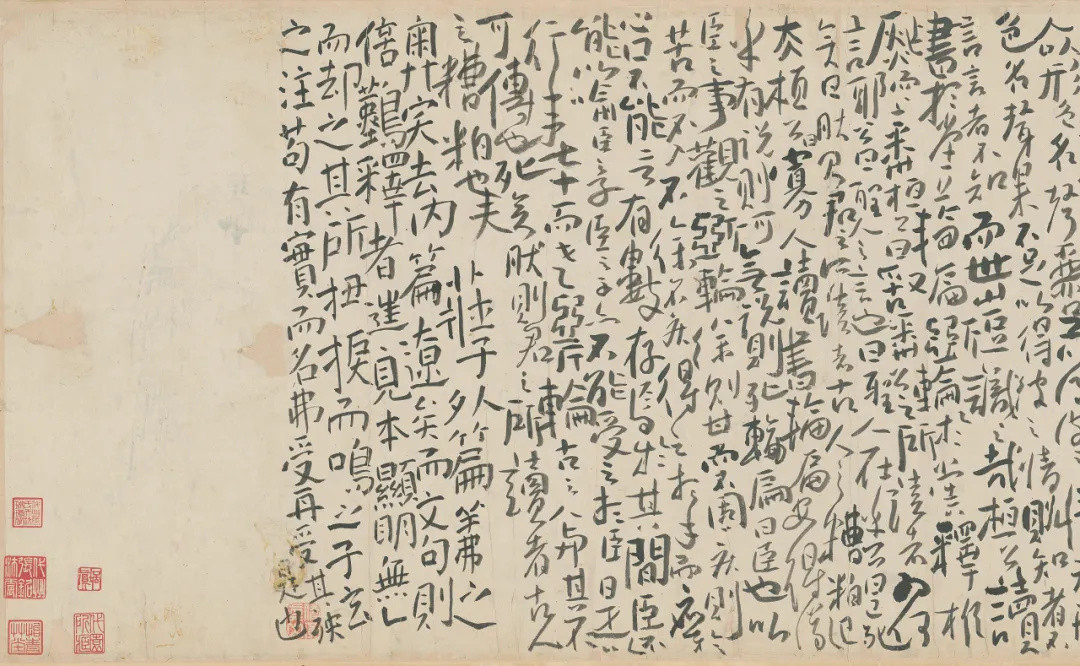 色名聲果不足以得彼之情則知者不
言言者不知而世豈識之哉桓公讀
書於堂上輪扁斲輪於堂下釋椎
問桓公曰之所讀者何
言耶公曰聖人之言也曰聖人在乎公曰已死
矣曰然則君之所讀者古人之糟粕已
夫桓公曰寡人讀書輪扁安得議
乎有說則可無說則死輪扁曰臣也以
臣之事觀之斲輪徐則甘而不固疾則
苦而不入不徐不疾得之於手而應
心口不能言有數存焉於其間臣不
能以喻臣之子臣之子亦不能受之於臣是以
行年七十而老斲輪古之人與其不
可傳也死矣然則君之所讀者古人
之糟粕也夫
莊子外篇弗之
去內篇遠矣而文句則
釋者進見本顯明無
而却之其所捩而鳴之子玄
之注苟有實而名弗受再受其殃
是也